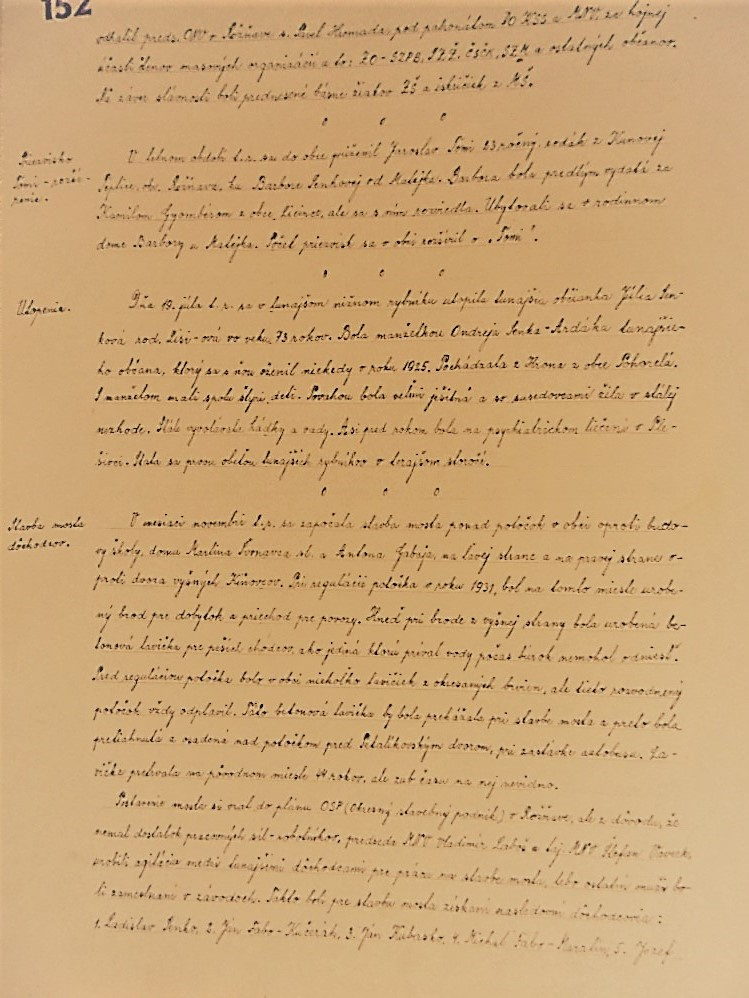 152
odhalil preds. ONV v Rožňave s. Pavel Hromada, pod patronátom ZO KSS a MNV za hojnej
účasti členov masových organizácií a to: ZO-SZPB, SZŽ, ČSČK, SZM a ostatných občanov.
Na záver slávnosti boli prednesené básne žiakov ZŠ a iskričiek z MŠ.
Priezvisko
Tomi - rozší-
renie.
V letnom období t.r. sa do obce priženil Jaroslav Tomi 23 ročný, rodák z Kunovej
Teplice, okr. Rožňava, ku Barbore Senkovej od Matejka. Barbora bola predtým vydatá za
Kamilom Gyömbérom z obce Licince, ale sa s ním rozviedla. Ubytovali sa v rodinnom
dome Barbory u Matejka. Počet priezvisk sa v obci rozšíril o „Tomi".
Utopenie.
Dňa 19. júla t.r. sa v tunajšom nižnom rybníku utopila tunajšia občianka Júlia Sen-
ková rod. ová vo veku 73 rokov. Bola manželkou Ondreja Senka - Ardáka tunajšie-
ho občana, ktorý sa s ňou oženil niekedy v roku 1925. Pochádzala z Hrona z obce Pohorelá.
S manželom mali spolu štyri deti. Povahou bola veľmi ješitná a so susedovcami žila v stálej
nezhode. Stále vyvolávala hádky a vady. Asi pred rokom bola na psychiatrickom liečení v Ple-
šivci. Stala sa prvou obeťou tunajších rybníkov v terajšom storočí.
Stavba mosta
dôchodcov.
V mesiaci novembri t.r. sa započala stavba mosta ponad potôčok v obci oproti budo-
vy školy, domu Martina Švonavca st. a Antona Gabaja, na ľavej strane a na pravej strane o-
proti dvora vyšných . Pri regulácii potôčka v roku 1931, bol na tomto mieste urobe-
ný brod pre dobytok a priechod pre povozy. Hneď pri brode z vyšnej strany bola urobená be-
tonová lavička pre peších chodcov, ako jediná ktorú príval vody počas búrok nemohol odniesť.
Pred reguláciou potôčka bolo v obci niekoľko lavičiek z okresaných bŕvien, ale tieto rozvodnený
potôčok vždy odplavil. Táto betonová lavička by bola prekážala pri stavbe mosta a preto bola
pretiahnutá a osadená nad potôčkom pred Petalíkovským dvorom, pri zastávke autobusu. La-
vička pretrvala na pôvodnom mieste 44 rokov, ale zub času na nej nevidno.
Postavenie mosta si vzal do plánu OSP (Okresný stavebný podnik) v Rožňave, ale z dôvodu, že
nemal dostatok pracovných síl - robotníkov, predseda MNV Vladimír Laboš a taj. MNV Štefan
urobili agitáciu medzi tunajšími dôchodcami pre prácu na stavbe mosta, lebo ostatní muži bo-
li zamestnaní v závodoch. Takto boli pre stavbu mosta získaní nasledovní dôchodcovia:
1. Ladislav Senko, 2. Ján Fabo - Kučerák, 3. Ján Kubasko, 4. Michal Fabo - , 5. Jozef